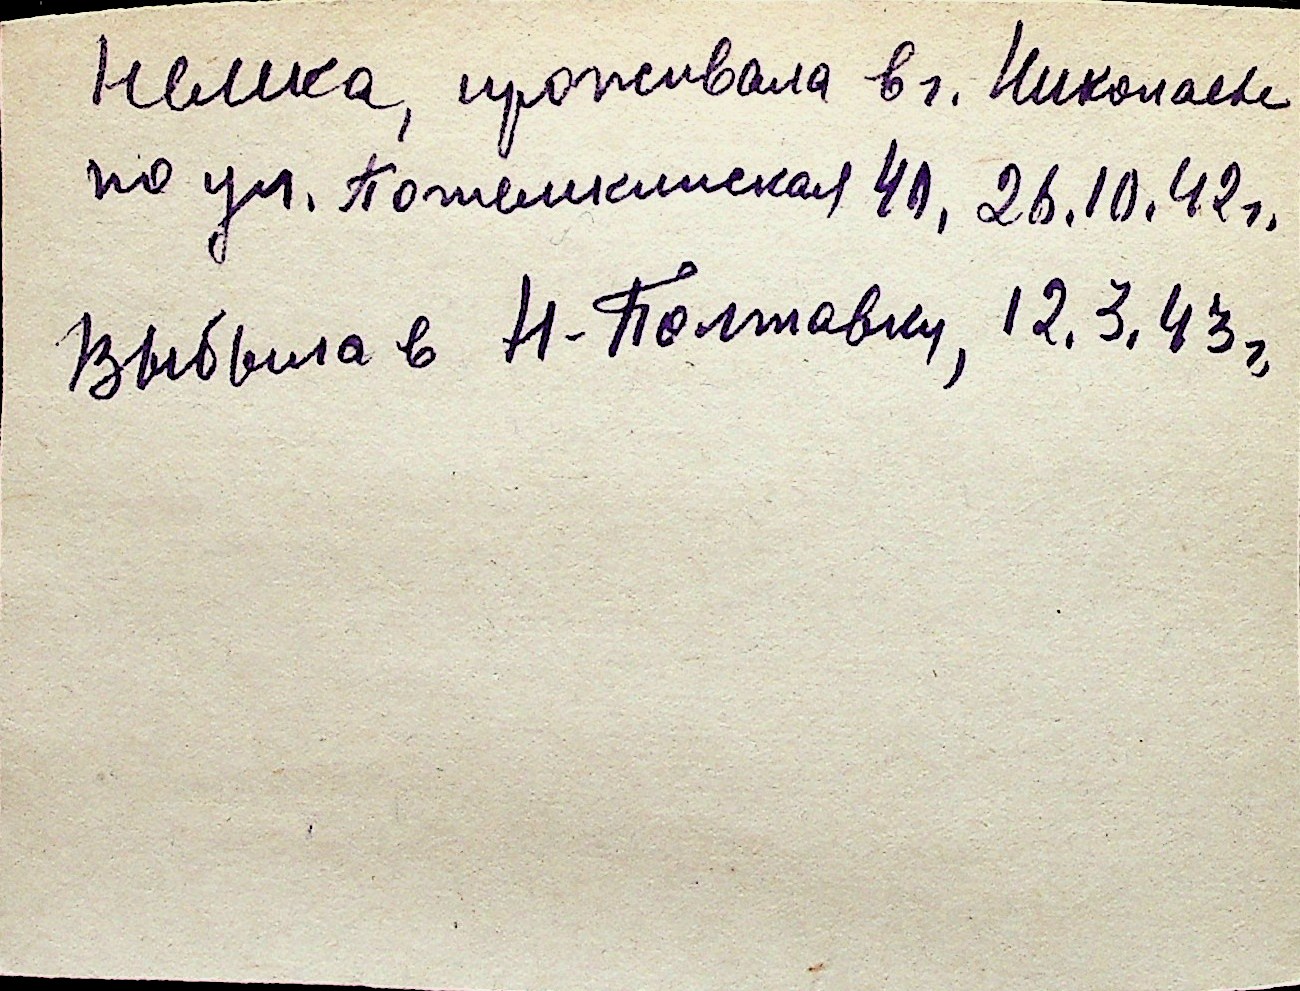 Немка, проживала в г. Николаеве
по ул. Потемкинская 41, 26.10.42г.
Выбыла в Н-Полтавку, 12.3.43г.